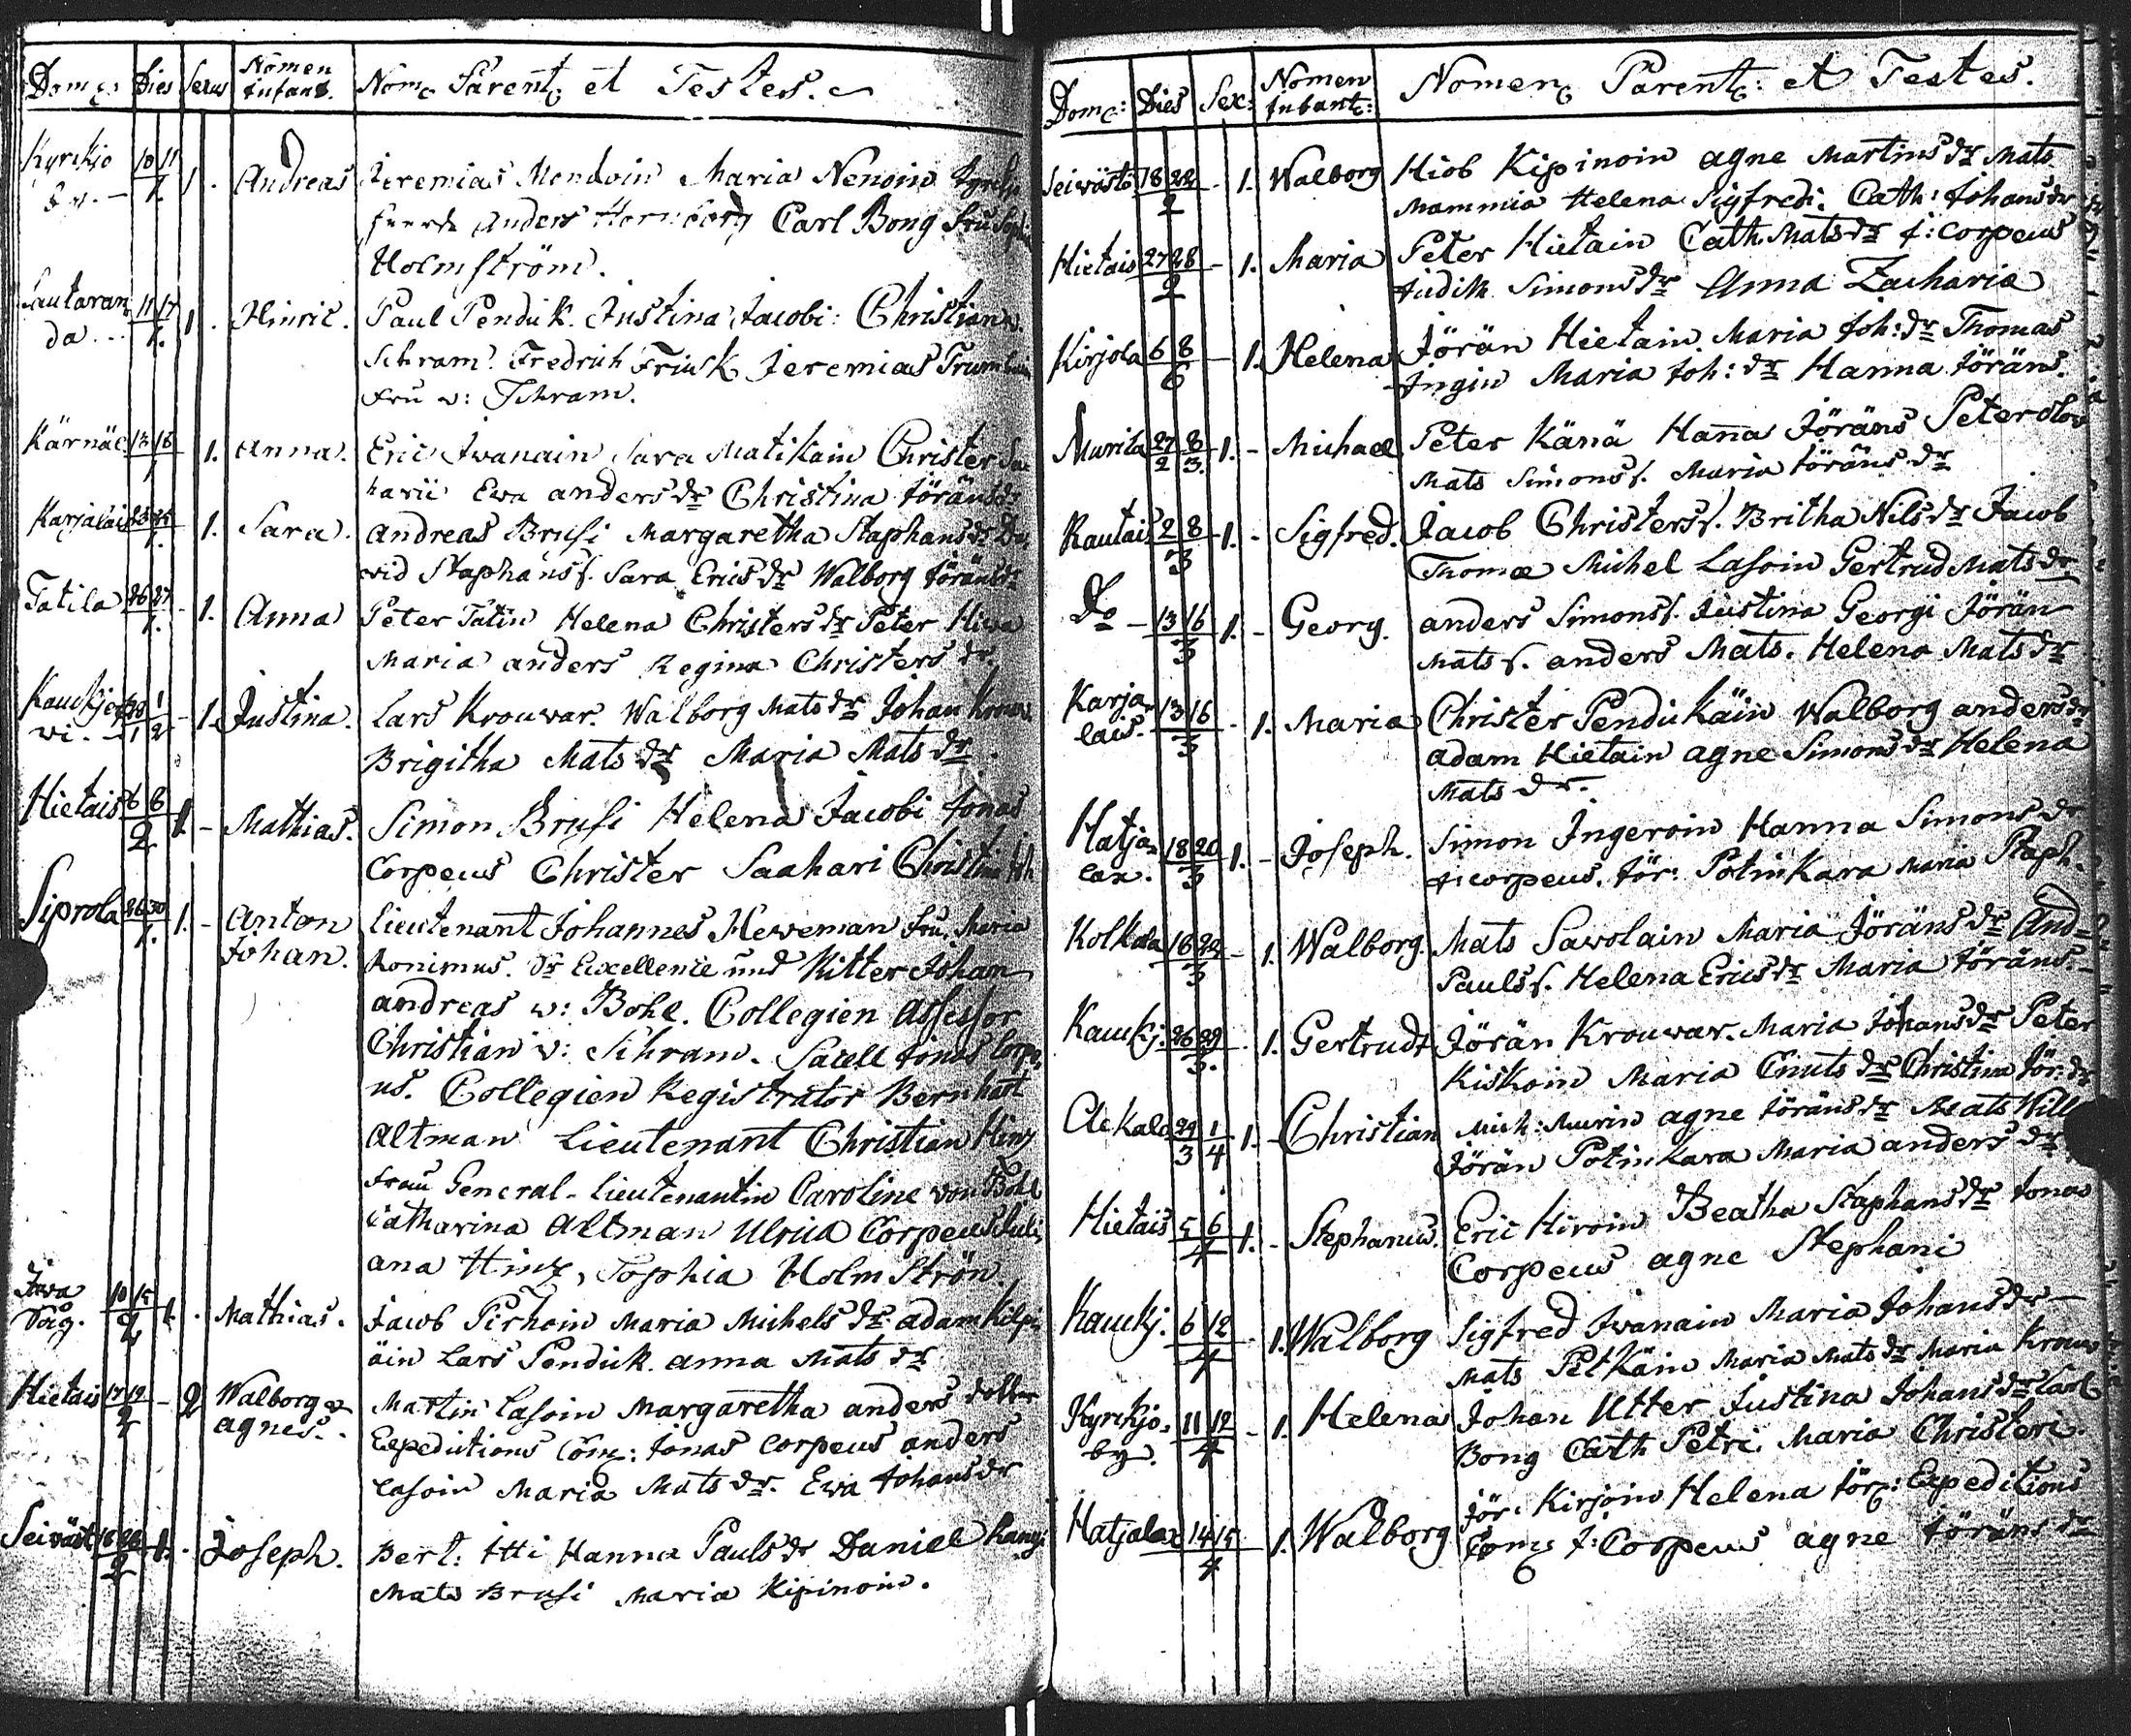 Domc: Dies Sexus Nomen Infant. Nomc Parentc et Testes.
Kyrckjo 10 11 1. Andreas Jeremias Mondoin Maria Nenoin
by. 1. Anders Carl Bong Fru Sophia
Holmström.
Sautaran 11 17 1. Hinric. Paul Penduk. Justina Jacobi: Christian v.
da 1. Schram. Fredrich Frisk Jeremias
Fru v: Schram.
Kärnäl. 13 16 1. Anna. Eric Iwanain Sara Matikain Christer Sac
1 harii Ewa anders dr Christina Jöräns dr
Karjalais 23 25 1. Sara. Andreas Brusi Margaretha Staphans dr Da,
1. wid Staphans s. Sara Erics dr Walborg Jöräns dr
Tatila 26 27 1. Anna Peter Tatin Helena Christers dr Peter Hiwa
1. Maria anders Regina Christers dr.
Kauckjer 28 1 1. Justina. Lars Krouwar. Walborg Mats dr Johan Krouv.
wi. 1 2 Brigitha Mats dr Maria Mats dr.
Hietais 6 8 1. Mathias. Simon Brusi Helena Jacobi Jonas
2 Corpeus Christer Saahari Christina Joh
Siprola 26 30 1. Anton Lieutenant Johannes Heweman Fru Maria
1. Johan. Ronimus. Sr Excellence und Ritter Johan
Andreas v: Bohl. Collegien Assessor
Christian v: Schram. Sacell Jonas Corpe,
us. Collegien Registrator Bernhart
Altman Lieutenant Christian Hinz
Frau General-Lieutenantin Caroline von Bohl
Catharina Altman Ulrica Corpeus Juli,
ana Hinz, Sophia Holmström.
Iwa 10 15 1. Mathias. Jacob Pirhoin Maria Michels dr Adam Kilpi
Såg. 2 äin Lars Penduk. Anna Mats dr
Hietais 17 19 2 Walborg & Martin Lasoin Margaretha anders dotter
2 agnes. Expeditions Comc: Jonas Corpeus anders
Lasoin Maria Mats dr. Ewa Johans dr
Seiväst 18 22 1. Joseph. Bert: Itti Hanna Pauls dr Daniel
2 Mats Brusi Maria Kipinoin.
Domc: Dies Sex: Nomen Infantc: Nomenc Parentc: et Testes.
Seivästö 18 22 1. Walborg Hiob Kipinoin agne Martins dr Mats
2 Mammia Helena Sigfredi. Cath: Johans dr
Hietais 27 28 1. Maria Peter Hietain Cath. Mats dr J: Corpeus
2 Judith Simons dr Anna Zacharia
Kirjola 6 8 1. Helena Jörän Hietain Maria Joh: dr Thomas
6 Ingin Maria Joh: dr Hanna Jöräns.
Murila 27 8 1. Michael Peter Känä Hanna Jöräns Peter Olov
2 3. Mats Simons s. Maria Jöräns dr
Rautais 2 8 1. Sigfred. Jacob Christers s. Britha Nils dr Jacob
3 Thomæ Michel Lasoin Gertrud Mats dr
Do 13 16 1. Georg. anders Simons s. Justina Georgi Jörän
3 Mats s. anders Mats. Helena Mats dr
Karja, 13 16 1. Maria Christer Pendukäin Walborg anders dr
lais. 3 Adam Hietain agne Simons dr Helena
Mats dr.
Hatja, 18 20 1. Joseph. Simon Ingeroin Hanna Simons dr
lax. 3 J: Corpeus. Jör: Potinkara Maria Staph.
Kolkala 18 22 1. Walborg. Mats Sawolain Maria Jöräns dr And=
3 Pauls s. Helena Erics dr Maria Jöräns.
Kauckj. 26 29 1. Gertrudt Jörän Krouwar. Maria Johans dr Peter
3. Kiskoin Maria Cnuts dr Christina Jör: dr
Alckala 29 1 1. Christian Mich: Murin agne Jöräns dr Mats Will
3 4 Jörän Potinkara Maria anders dr
Hietais 5 6 1. Stephanus. Eric Hiroin Beatha Staphans dr Jonas
4 Corpeus agne Stephani
Kauckj. 6 12 1. Walborg Sigfred Iwanain Maria Johans dr
4 Mats Pelkäin Maria Mats dr Maria Krouv
Kyrckjo, 11 12 1. Helena Johan Utter Justina Johans dr Carl
by. 4 Bong Cath Petri. Maria Christeri.
Hatjalax 14 15 1. Walborg Jör: Kirjoin Helena Jörc: Expeditions
4 Comc J: Corpeus agne Jöräns dr